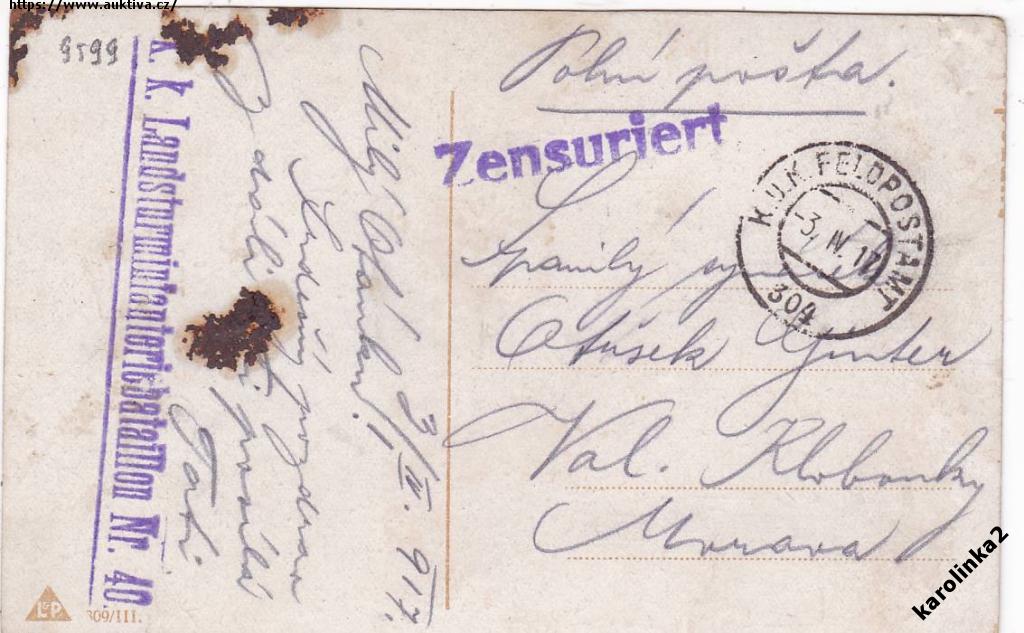 https://www.auktiva.cz/
9599
K. k. Landsturminfanteriebataillon Nr. 40.
Milý Otoušku!
3/IV. 917.
Srdečný pozdrav
z dáli posílá
Táta
L&P
309/III.
Polní pošta.
Zensuriert
K.U.K. FELDPOSTAMT
-3. IV. 17
304
Spanilý
Otúšek Günter
Val. Klobouky
Morava
karolinka2